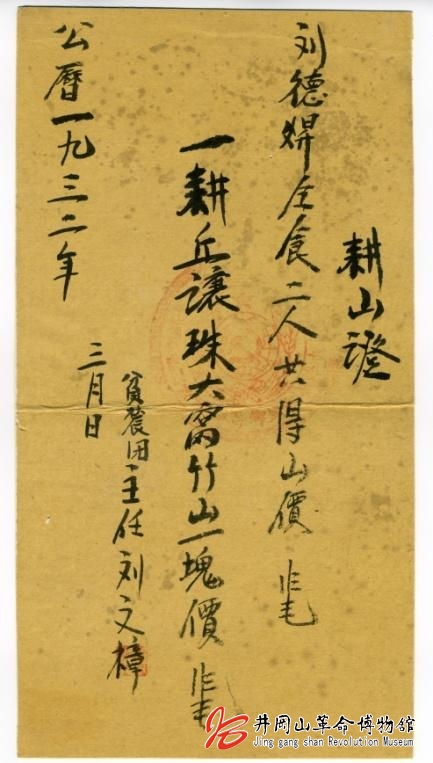 耕山證
刘德 仝食二人共得山價
一耕丘讓珠大窩竹山一塊價
貧農团主任刘文樟
公曆一九三二年
三月日
井冈山革命博物馆
Jing gang shan Revolution Museum